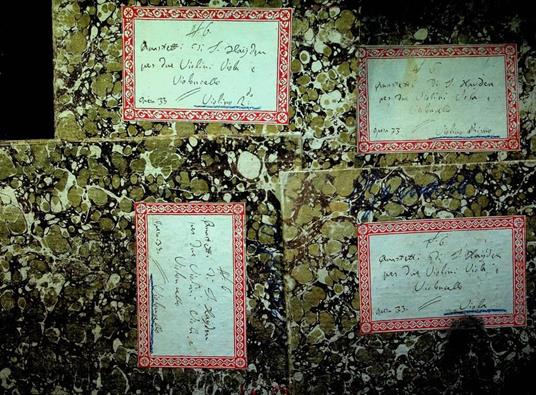 N° 6
Quartetti di J. Hayden
per due Violini Viola e
Violoncello
opera 33. Violino 2do
N° 6
Quartetti di J. Hayden
per due Violini Viola e
Violoncello
opera 33 Violino Primo
N° 6
Quartetti di J. Hayden
per due Violini Viola e
Violoncello
opera 33. Violoncello
N° 6
Quartetti di J. Hayden
per due Violini Viola e
Violoncello
opera 33. Viola